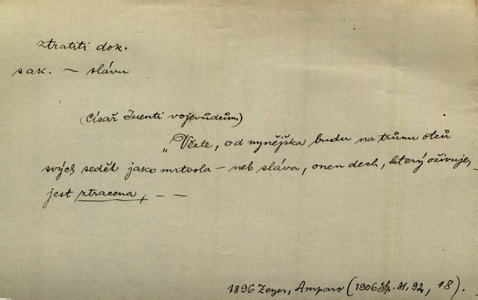 ztratiti dok.
sak. – slávu
(Císař Juenti vojevůdcům)
"Vězte, od nynějška budu na trůnu otců
svých sedět jako mrtvola – neb sláva, onen dech, který oživuje,
jest ztracena, – –
1896 Zeyer, Amparo (1906 Sp. 31, 92, 18).